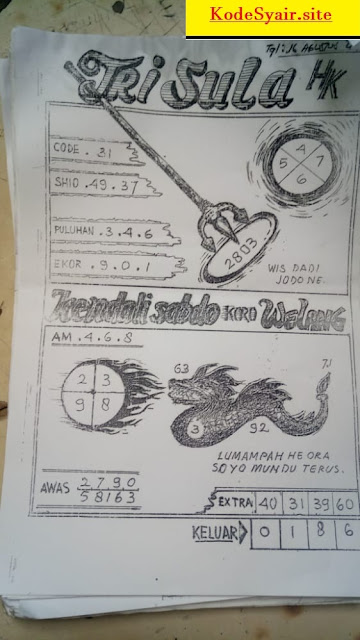 KodeSyair.site
Tgl: 16 AGUSTUS
TRI SULA HK
CODE . 31
SHIO . 49 . 37
PULUHAN . 3 . 4 . 6
EKOR . 9 . 0 . 1
4
5 7
6
2803
WIS DADI
JODONE.
Kendali sabdo KARO WELING
AM . 4 . 6 . 8
2 3
9 8
63
71
3
92
LUMAMPAH HE ORA
SOYO MUNDU TERUS.
AWAS 2 7 9 0
5 8 1 6 3
EXTRA 40 31 39 60
KELUAR 0 1 8 6